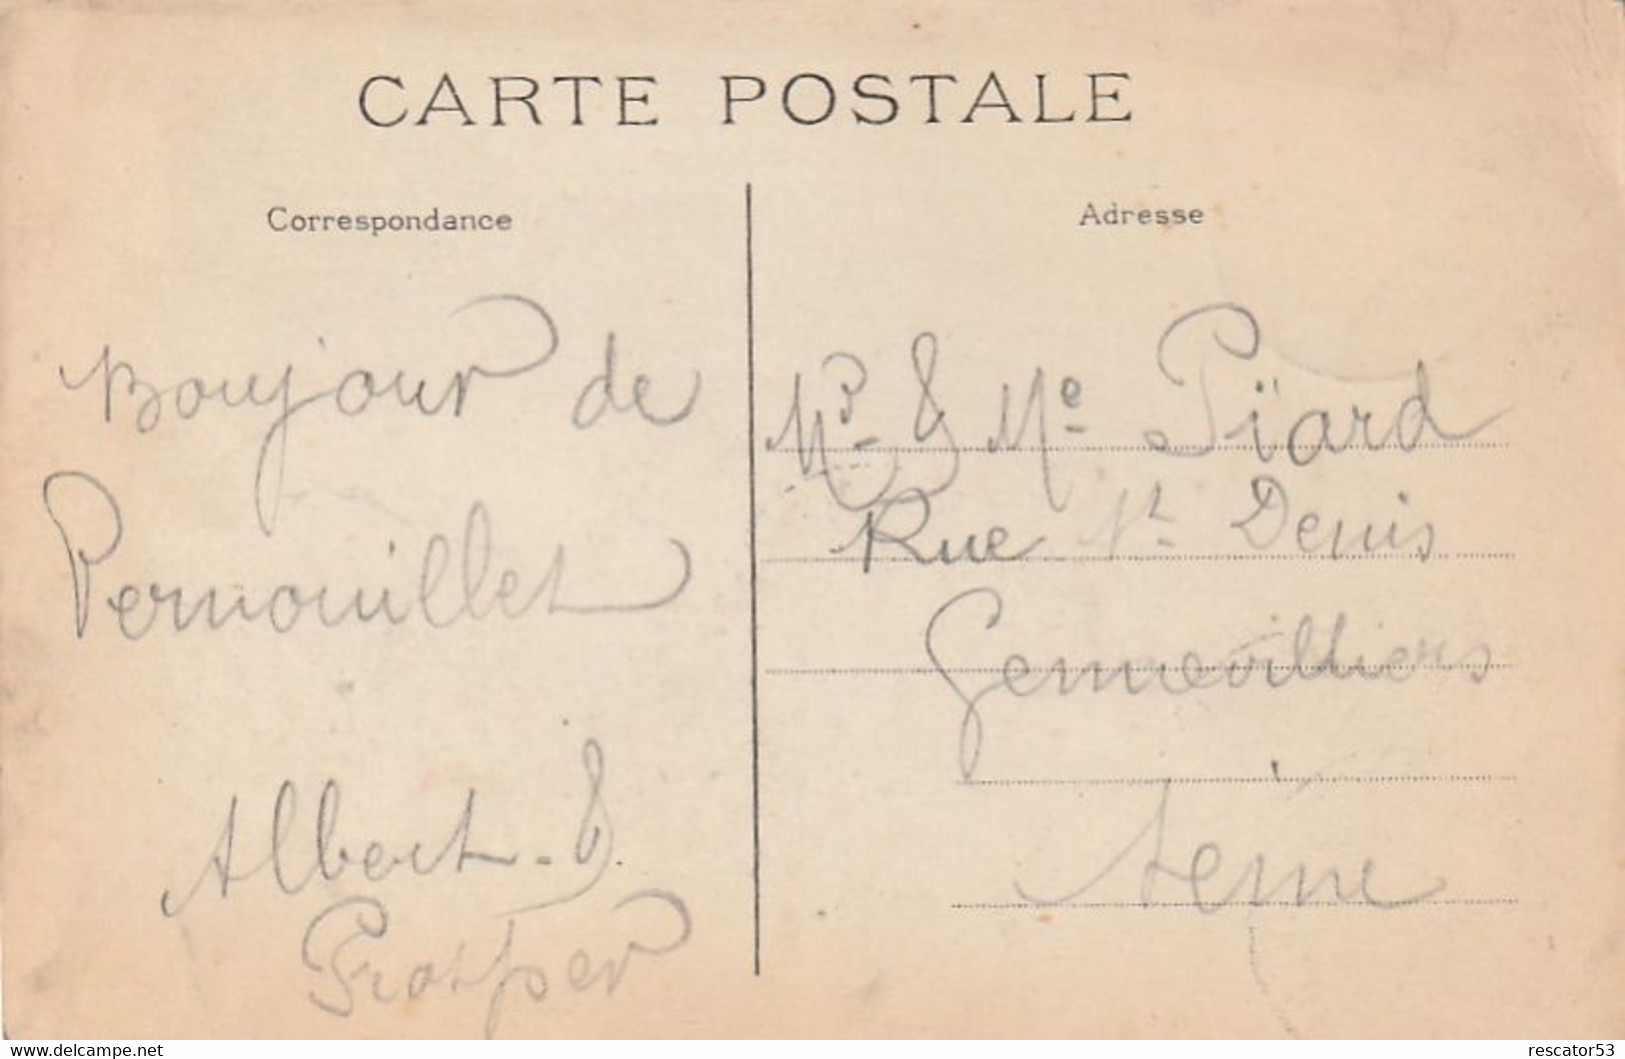 CARTE POSTALE
Correspondance
Bonjour de
Pernouillet
Albert &
Prosper
Adresse
Mr & Me Piard
Rue St Denis
Gennevilliers
Seine
www.delcampe.net
rescator53